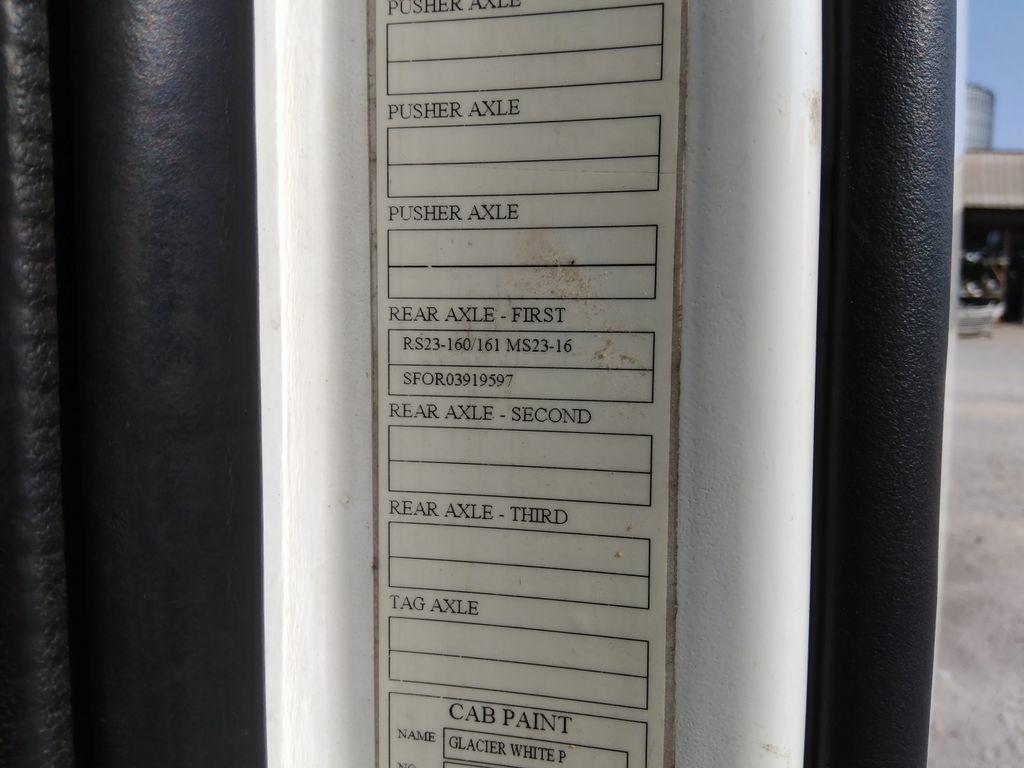 PUSHER AXLE
PUSHER AXLE
PUSHER AXLE
REAR AXLE - FIRST
RS23-160/161 MS23-16
SFOR03919597
REAR AXLE - SECOND
REAR AXLE - THIRD
TAG AXLE
CAB PAINT
NAME GLACIER WHITE P